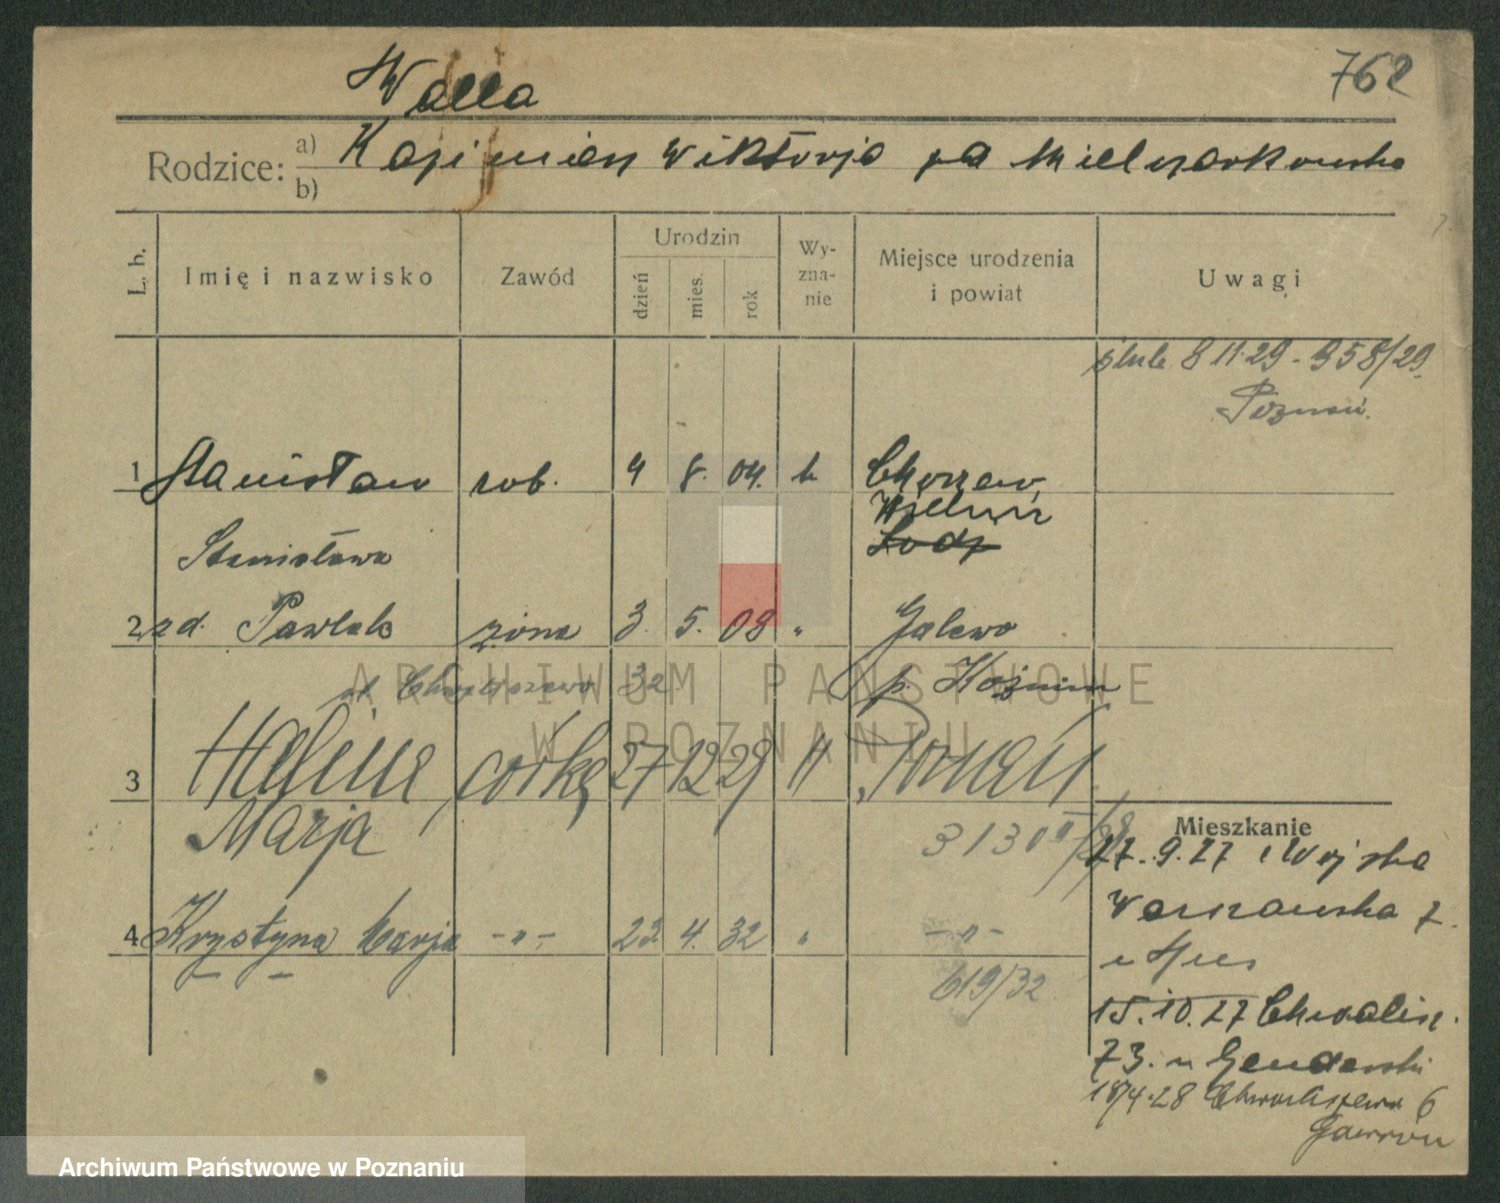 762
Walla
Rodzice: a) Kazimierz Wiktorja za Mielczarkowska
b)
L. b. Imię i nazwisko Zawód Urodzin dzień mies. rok Wy-zna-nie Miejsce urodzenia i powiat Uwagi
ślub 8 11.29 - 958/29
Poznań.
1 Stanisław rob. 4 8. 04. k. Chorzew
Wieluń
Łódź
Stanisława
2 zd. Pawlak żona 3. 5. 08 " Galewo
32 p. Koźmin
3 Halina córka 27 12 29 " Poznań
Marja 3130
4 Krystyna Marja -"- 23. 4. 32 " -"-
619/32
Mieszkanie
27.9.27 z Wojska
Warszawska 7.
15.10.27 Chwalisz.
73. u Gendarski
18/4.28 Chwaliszewo 6
Gawron
ARCHIWUM PAŃSTWOWE
W POZNANIU
Archiwum Państwowe w Poznaniu